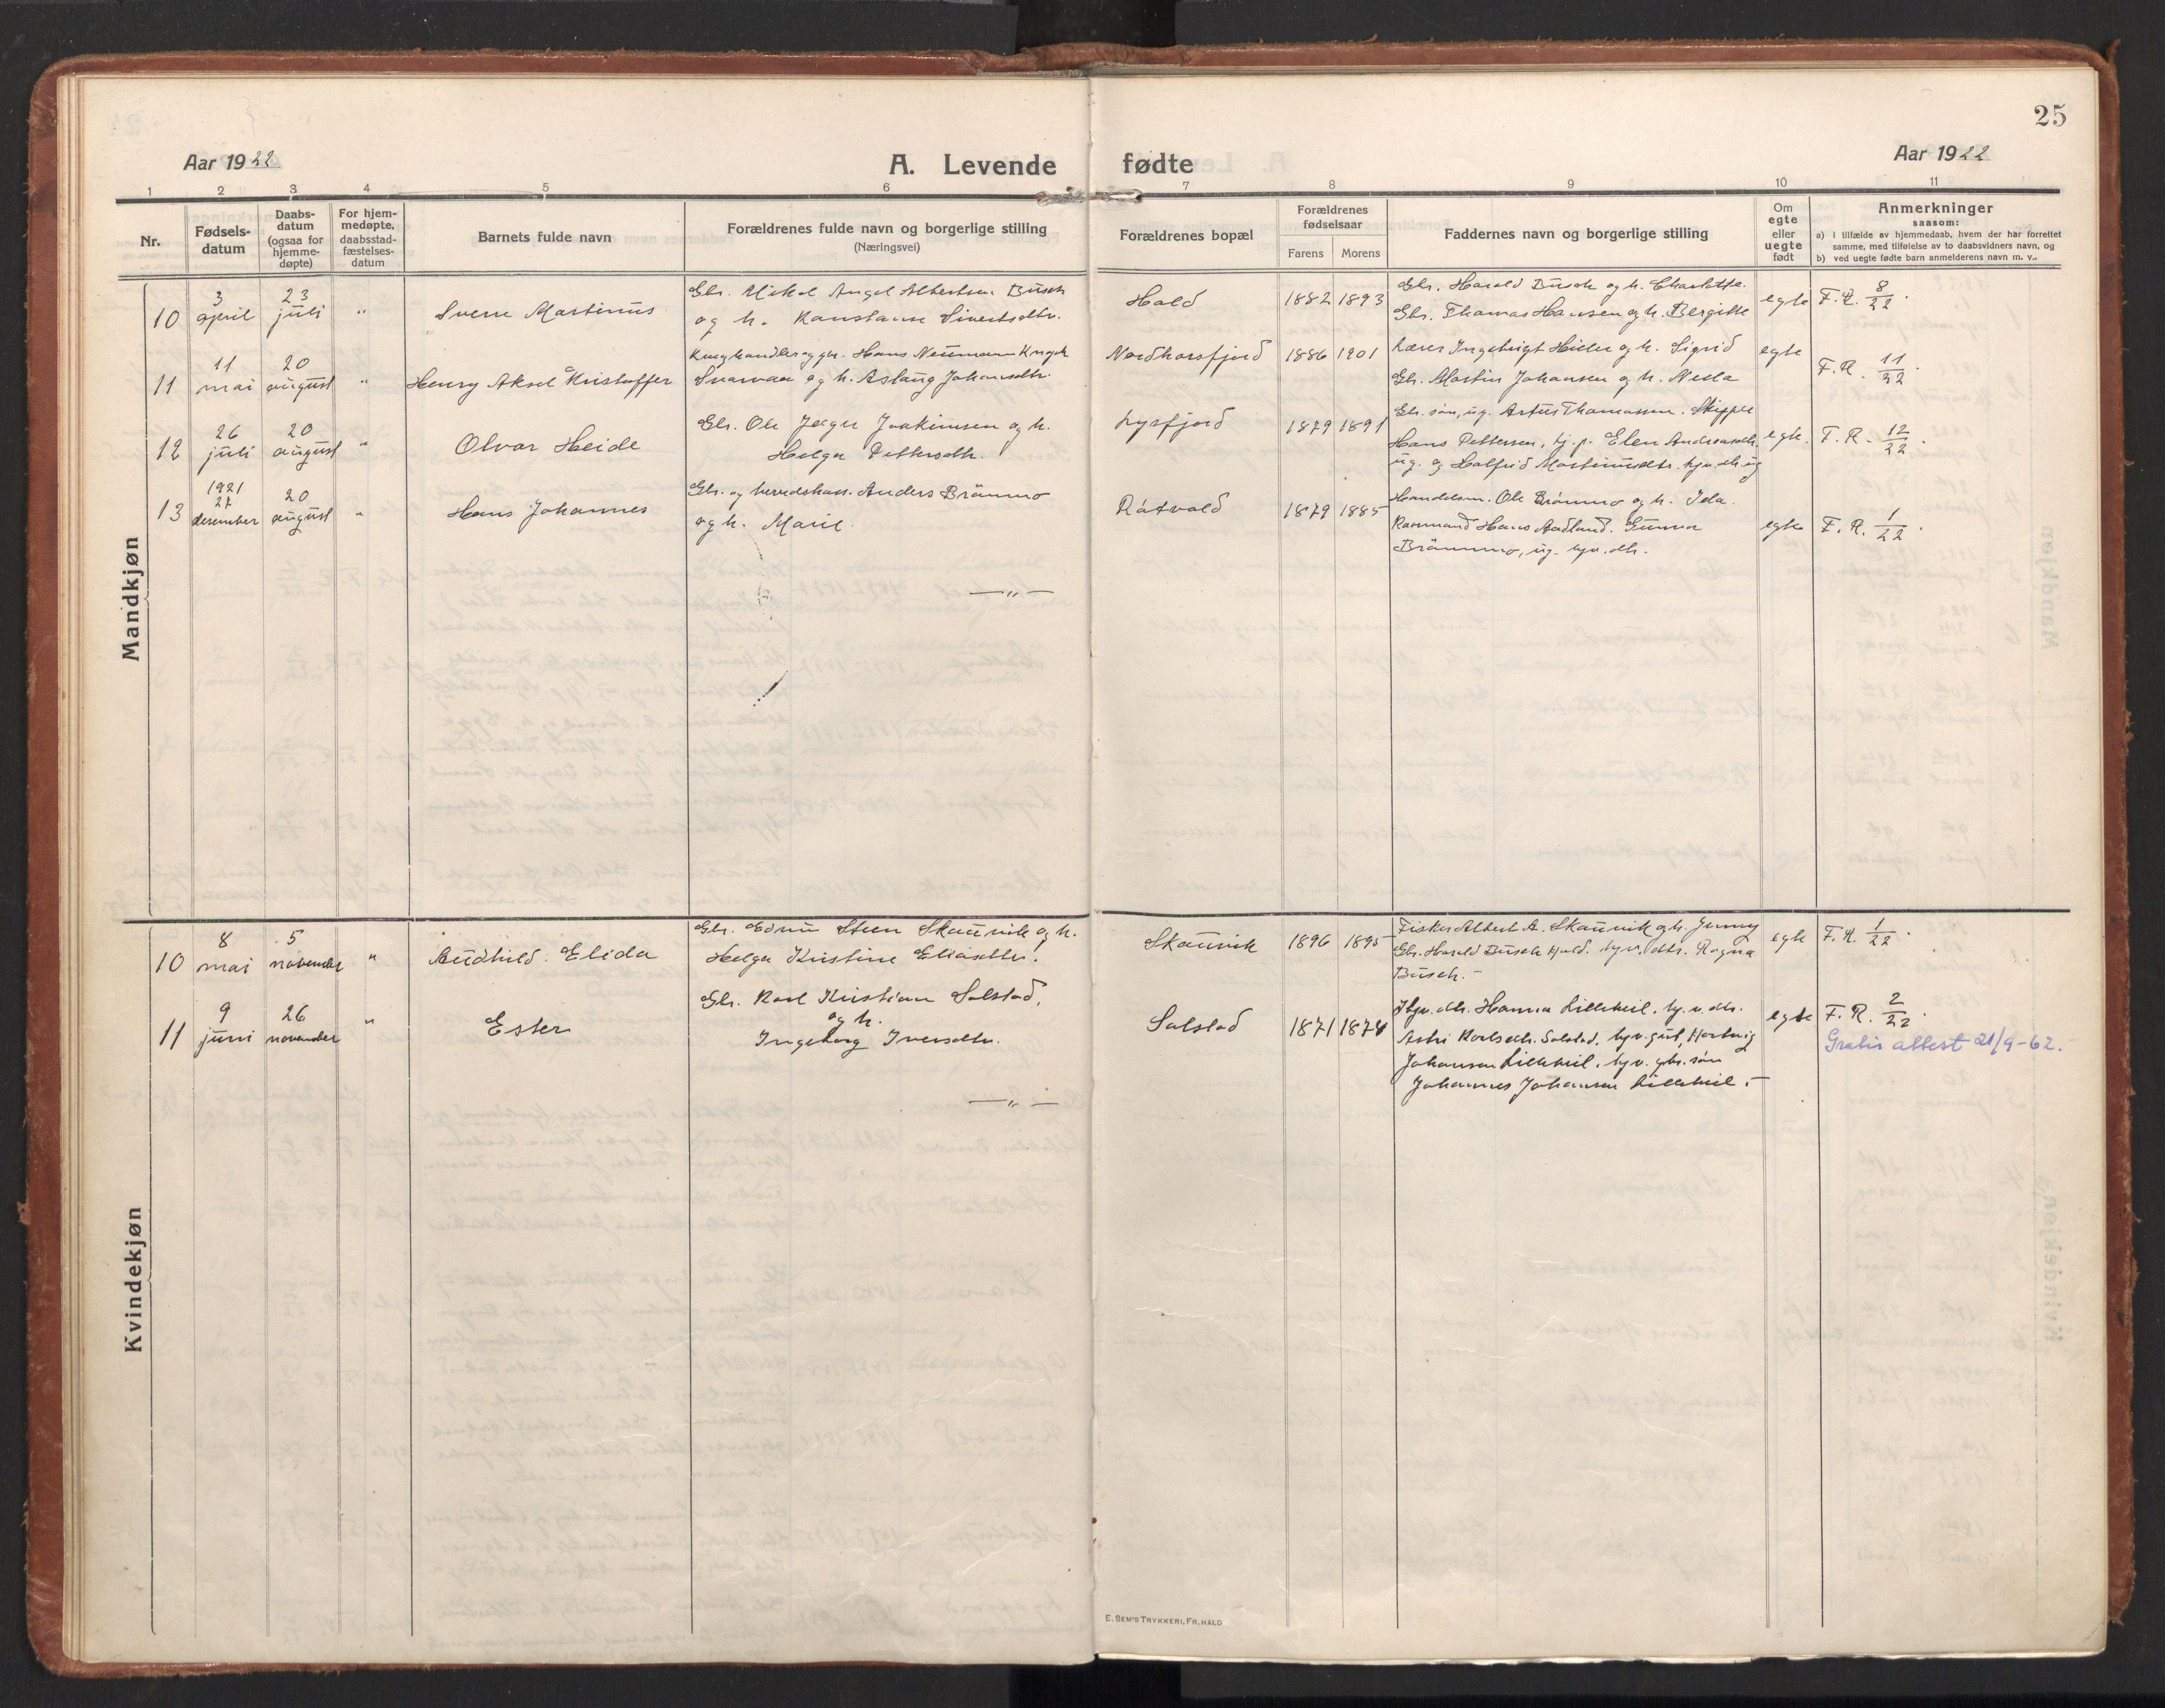 25
Aar 1922
A. Levende fødte
Aar 1922
1 2 3 4 5 6 7 8 9 10 11
Nr.
Fødsels-
datum
Daabs-
datum
(ogsaa for
hjemme-
døpte)
For hjem-
medøpte,
daabsstad-
fæstelses-
datum
Barnets fulde navn
Forældrenes fulde navn og borgerlige stilling
(Næringsvei)
Forældrenes bopæl
Forældrenes
fødselsaar
Farens Morens
Faddernes navn og borgerlige stilling
Om
egte
eller
uegte
født
Anmerkninger
saasom:
a) i tilfælde av hjemmedaab, hvem der har forrettet
samme, med tilføielse av to daabsvidners navn, og
b) ved uegte fødte barn anmelderens navn m. v..
Mandkjøn
10
3
april
23
juli
"
Sverre Martinus
Gbr. Mikal Angel Albertsen Busch
og h. Konstanse Sivertsdtr.
Hald
1882 1893
Gbr. Harald Busch og h. Charlotte.
Gbr. Thomas Hansen og h. Bergitte
egte
F.R. 8/22.
11
11
mai
20
august
"
Henry Aksel Kristoffer
og gbr. Hans Neumann
og h. Aslaug Johansdtr.
1886 1901
Lærer Ingebrigt og h. Sigrid
Gbr. Martin Johansen og h.
egte
F.R. 11/22.
12
26
juli
20
august
"
Olvar Heide
Gbr. Ole Joakimsen og h.
Helga Pettersdtr.
Lysfjord
1879 1891
Gbr. søn, ug. Artur Thomassen. Skipper
Hans Pettersen, tj.p. Elen Andreasdtr.
ug. og Halfrid Martinusdtr. hjv. dtr. ug
egte.
F.R. 12/22.
13
1921
27
desember
20
august
"
Hans Johannes
Gbr. og Anders Brømmo
og h. Marie.
1879 1885
Handelsm. Ole Brømmo og h. Ida.
Hans Aadland. Gunna
Brømmo, ug. hjv. dtr.
egte
F.R. 1/22.
— " —
Kvindekjøn
10
8
mai
5
november
"
Audhild. Elida
Gbr. Edvin Steen Skaurvik og h.
Helga Kristine Eliasdtr.
Skaurvik
1896 1895
Fisker Albert A. Skaurvik og h. Jenny
Gbr. Harald Busch Hald. hjv. dtr. Ragna
Busch. –
egte
F.R. 1/22.
11
9
juni
26
november
"
Ester
Gbr. Karl Kristian Solstad.
og h.
Ingeborg Iversdtr.
Solstad
1871 1874
Hjv. dtr. Hanna Lilleheil. hj. v. dtr.
Astri Karlsdtr. Solstad, hjv. gut, Hartvig
Johansen Lilleheil. hjv. gbr. søn
Johannes Johansen Lilleheil. –
egte
F.R. 2/22.
Gratis attest 21/9-62.
— " —
E. SEM'S TRYKKERI, FR.HALD